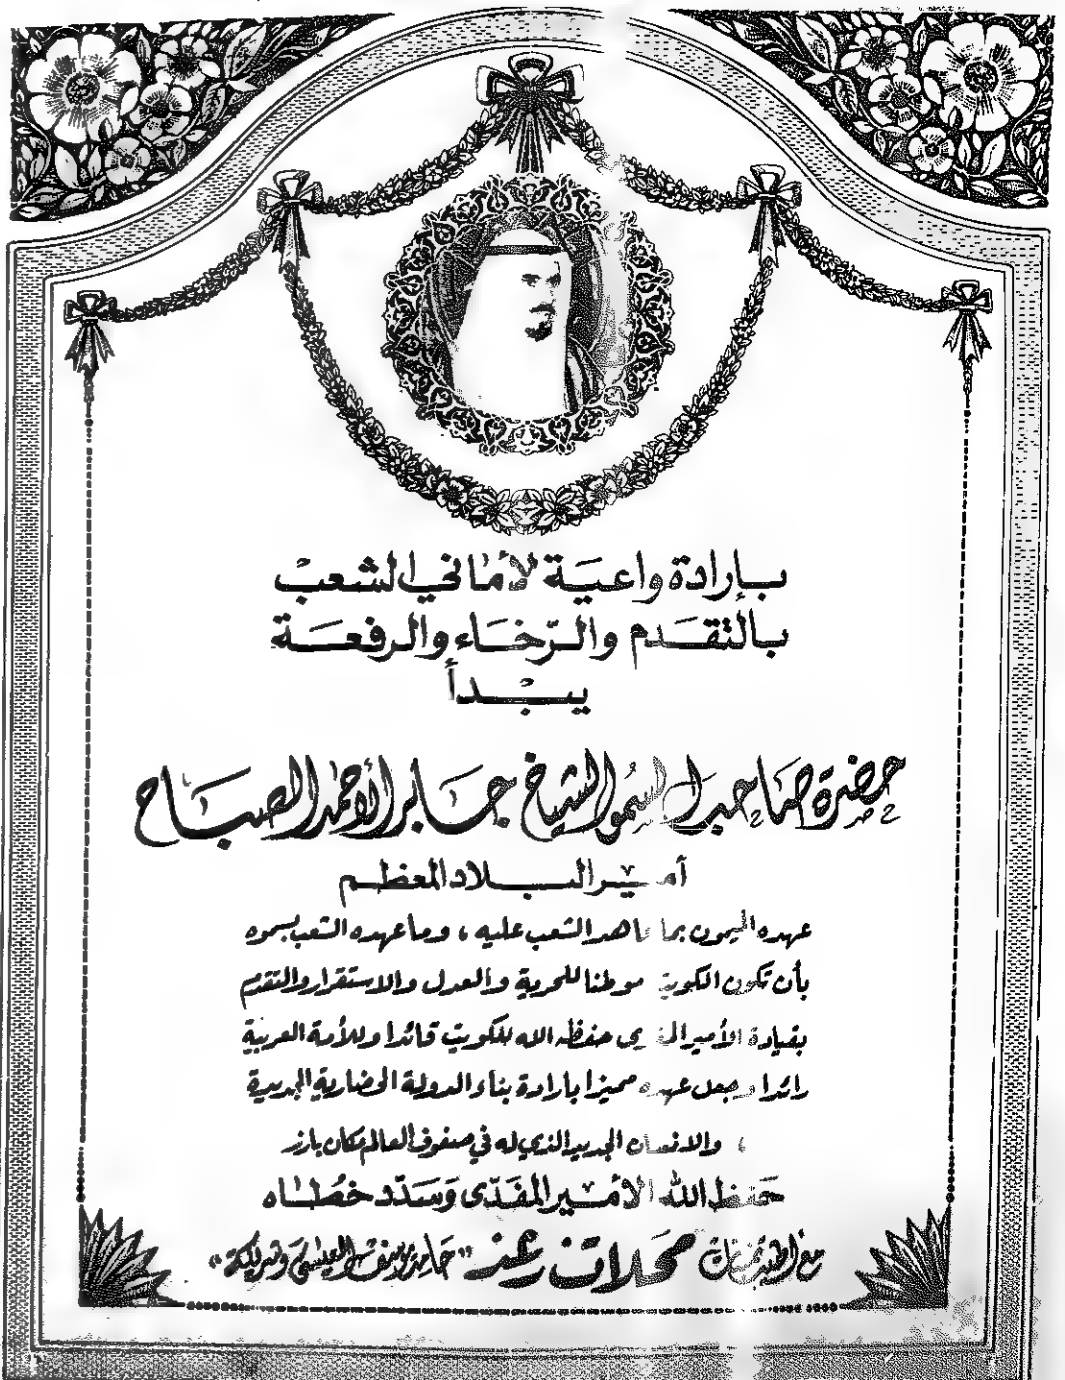 بإرادة واعية لأماني الشعب
بالتقدم والرّخاء والرفعة
يبدأ
حضرة صاحب السمو الشيخ جابر الأحمد الصباح
أمير البلاد المعظم
عهده الميمون بما عاهد الشعب عليه ، وما عهده الشعب بسموه
بأن تكون الكويت موطنا للحرية والعدل والاستقرار والتقدم
بقيادة الأمير المفدى حفظه الله للكويت قائدا وللأمة العربية
رائدا وجعل عهده مميزا بارادة بناء الدولة الحضارية الجديدة
، والانسان الجديد الذي له في صفوف العالم مكان بارز
حفظ الله الأمير المفدّى وَسَدّد خُطاه
مع أطيب تمنيات محلات "حامد يوسف العيسى وشريكه"